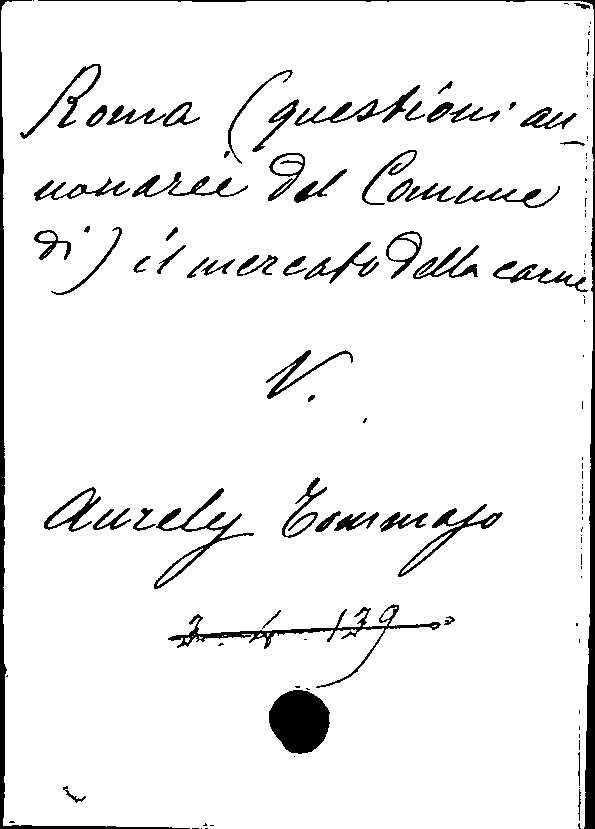 Roma (questioni an-
nonarie del Comune
di) il mercato della carne
V.
Aurely Tommaso
3. 4. 139